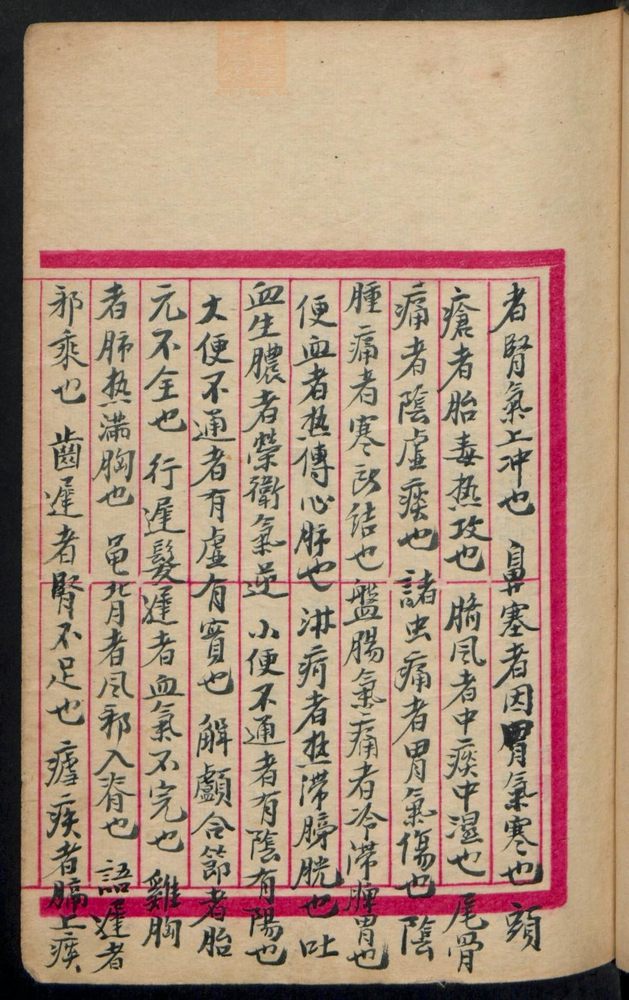 者腎氣上冲也 鼻塞者因胃氣寒也 頭
瘡者胎毒热攻也 臍風者中痰中濕也 尾骨
痛者陰虛痰也 諸虫痛者胃氣傷也 陰
腫痛者寒所結也 盤腸氣痛者冷滯脾胃也
便血者热傳心肺也 淋疴者热滯膀胱也 吐
血生膿者榮衛氣逆 小便不通者有陰有陽也
大便不通者有虛有實也 解顱合節者胎
元不全也 行遲髮遲者血氣不完也 雞胸
者肺热滿胸也 龟背者风邪入脊也 語遲者
邪乘也 齒遲者腎不足也 瘧疾者膈上痰